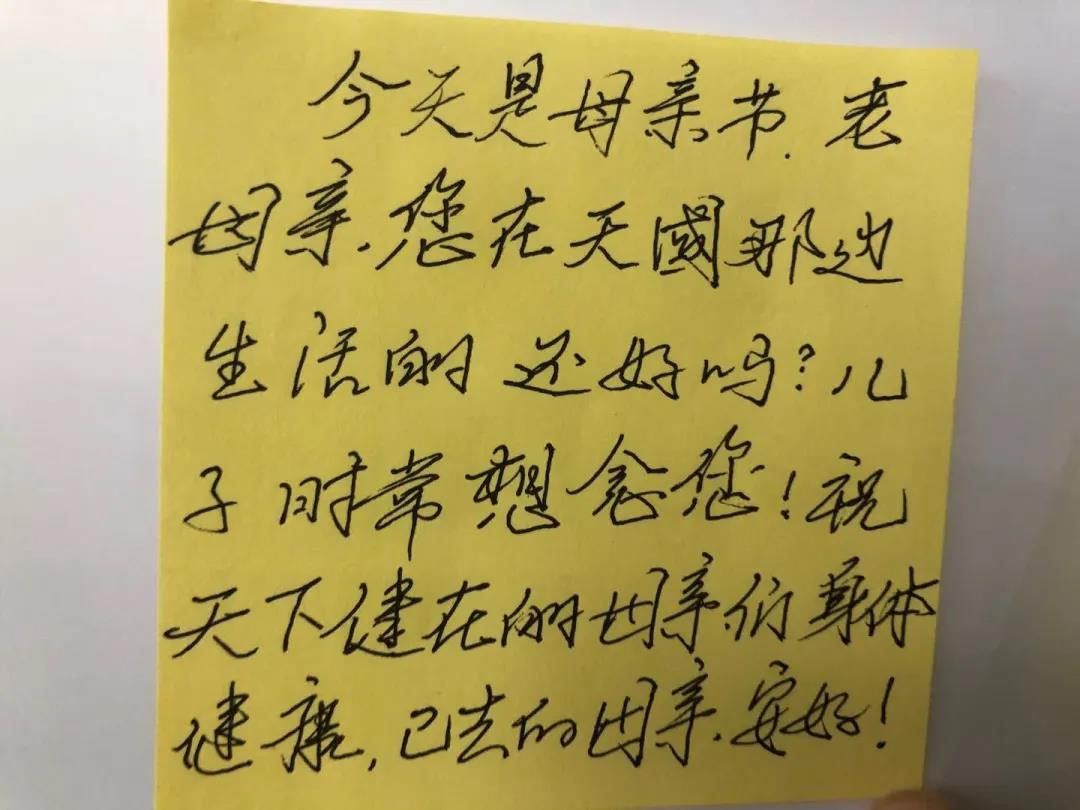 今天是母亲节.老
母亲.您在天國那边
生活的还好吗?儿
子时常想念您!祝
天下健在的母亲们身体
健康,已去的母亲.安好!